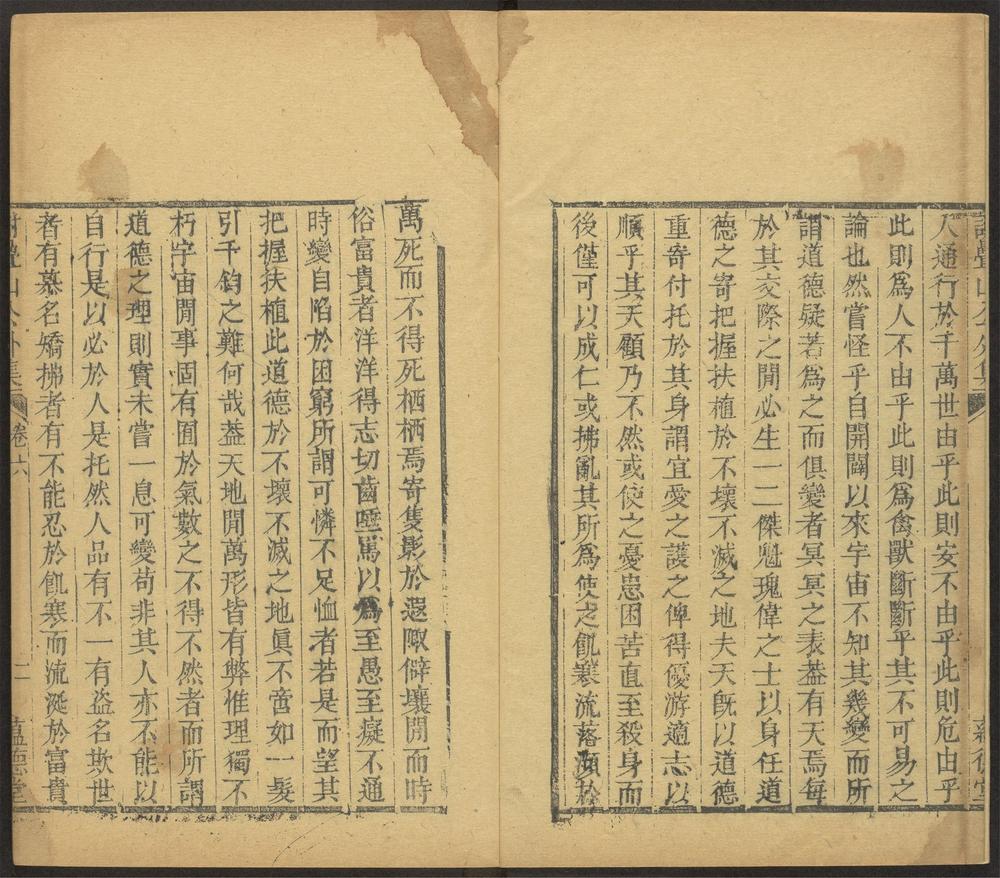 人通行於千萬世由乎此則安不由乎此則危由乎
此則爲人不由乎此則爲禽獸斷斷乎其不可易之
論也然嘗怪乎自開闢以來宇宙不知其幾變而所
謂道德疑若爲之而俱變者冥冥之表葢有天焉每
於其交際之閒必生一二傑魁瑰偉之士以身任道
德之寄把握扶植於不壞不滅之地夫天旣以道德
重寄付托於其身謂宜愛之護之俾得優游適志以
順乎其天顧乃不然或使之憂患困苦直至殺身而
後僅可以成仁或拂亂其所爲使之飢寒流落瀕於
萬死而不得死栖栖焉寄隻影於遐陬僻壤閒而時
俗富貴者洋洋得志切齒唾罵以爲至愚至癡不通
時變自陷於困窮所謂可憐不足恤者若是而望其
把握扶植此道德於不壞不滅之地眞不啻如一髮
引千鈞之難何哉葢天地閒萬形皆有弊惟理獨不
朽宇宙閒事固有囿於氣數之不得不然者而所謂
道德之理則實未嘗一息可變苟非其人亦不能以
自行是以必於人是托然人品有不一有盜名欺世
者有慕名矯拂者有不能忍於飢寒而流涎於富貴
卷六
二
蘊德堂